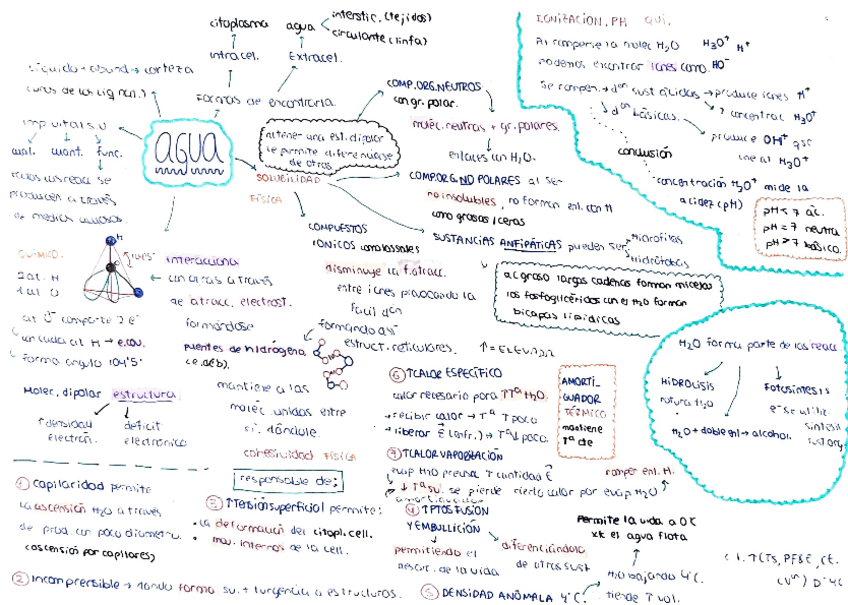 citoplasma
agua
interstic. (tejidos)
circulante (linfa)
intracel.
Extracel.
Formas de encontrarla
líquido + abund → corteza
imp vital s.u
cual. cuant. func.
todas las reacc se
producen a través
de medios acuosos
AGUA
al tener una est. dipolar
le permite diferenciarse
de otros
SOLUBILIDAD
FÍSICA
COMP. ORG. NEUTROS
con gr. polar.
moléc. neutras + gr. polares.
enlaces con H2O.
COMP. ORG. NO POLARES al ser
no insolubles, no forman enl. con H
como grasas/ceras
SUSTANCIAS ANFIPÁTICAS pueden ser
hidrófilas
hidrófobas
ac graso largas cadenas forman micelas
los fosfoglicéridos con el H2O forman
bicapas lipídicas
COMPUESTOS
IÓNICOS como las sales
disminuye la f. atracc.
entre iones provocando la
fácil dón
formando así
estruct. reticulares.
↑ = ELEVADA
IONIZACIÓN, PH QUI.
Al romperse la moléc H2O H3O+ H+
podemos encontrar iones como HO-
Se rompen → dón sust ácidas → produce iones H+
↑ concentrac H3O+
dón básicas.
produce OH+ que
une al H3O+
conclusión
concentración H3O+ mide la
acidez (pH)
pH < 7 ác.
pH = 7 neutra
pH > 7 básica.
QUÍMICO.
2 at. H
1 at O
H
104'5°
at O- comparte 2 e-
un cada at H → e.cov.
forma ángulo 104'5°
Moléc. dipolar estructura
↑ densidad
electrón.
déficit
electrónico
interacciona
con otras a través
de atracc. electrost.
formándose
puentes de hidrógeno
(e. déb).
mantiene a las
moléc. unidas entre
sí. dándole.
cohesividad FÍSICA
responsable de:
① capilaridad permite
la ascensión H2O a través
de prod. con poco diámetro.
(ascensión por capilares)
② Incompresible → dando forma su. + turgencia a estructuras.
③ ↑ Tensión superficial permite:
• La deformación del citopl. cell.
• mov. internos de la cell.
④ ↑ PTOS FUSIÓN
Y EMBULLICIÓN
permitiendo el
desarr. de la vida
diferenciándola
de otras sust
⑤ DENSIDAD ANÓMALA 4°C.
H2O bajando 4°C.
tiende ↑ vol.
Permite la vida a 0°C
xk el agua flota
⑥ ↑ CALOR ESPECÍFICO
calor necesario para ↑ Tª H2O.
→ recibir calor → Tª ↑ poco
→ liberar E (enfr.) → Tª ↓ poco.
AMORTI-
GUADOR
TÉRMICO
mantiene
Tª cte
⑦ ↑ CALOR VAPORIZACIÓN
evap H2O precisa ↑ cantidad E
romper enl. H.
↓ Tª su. se pierde calor por evap H2O
H2O forma parte de las reacc
HIDRÓLISIS
rotura H2O
FOTOSÍNTESIS
e- se utiliz.
H2O + doble enl → alcohol.